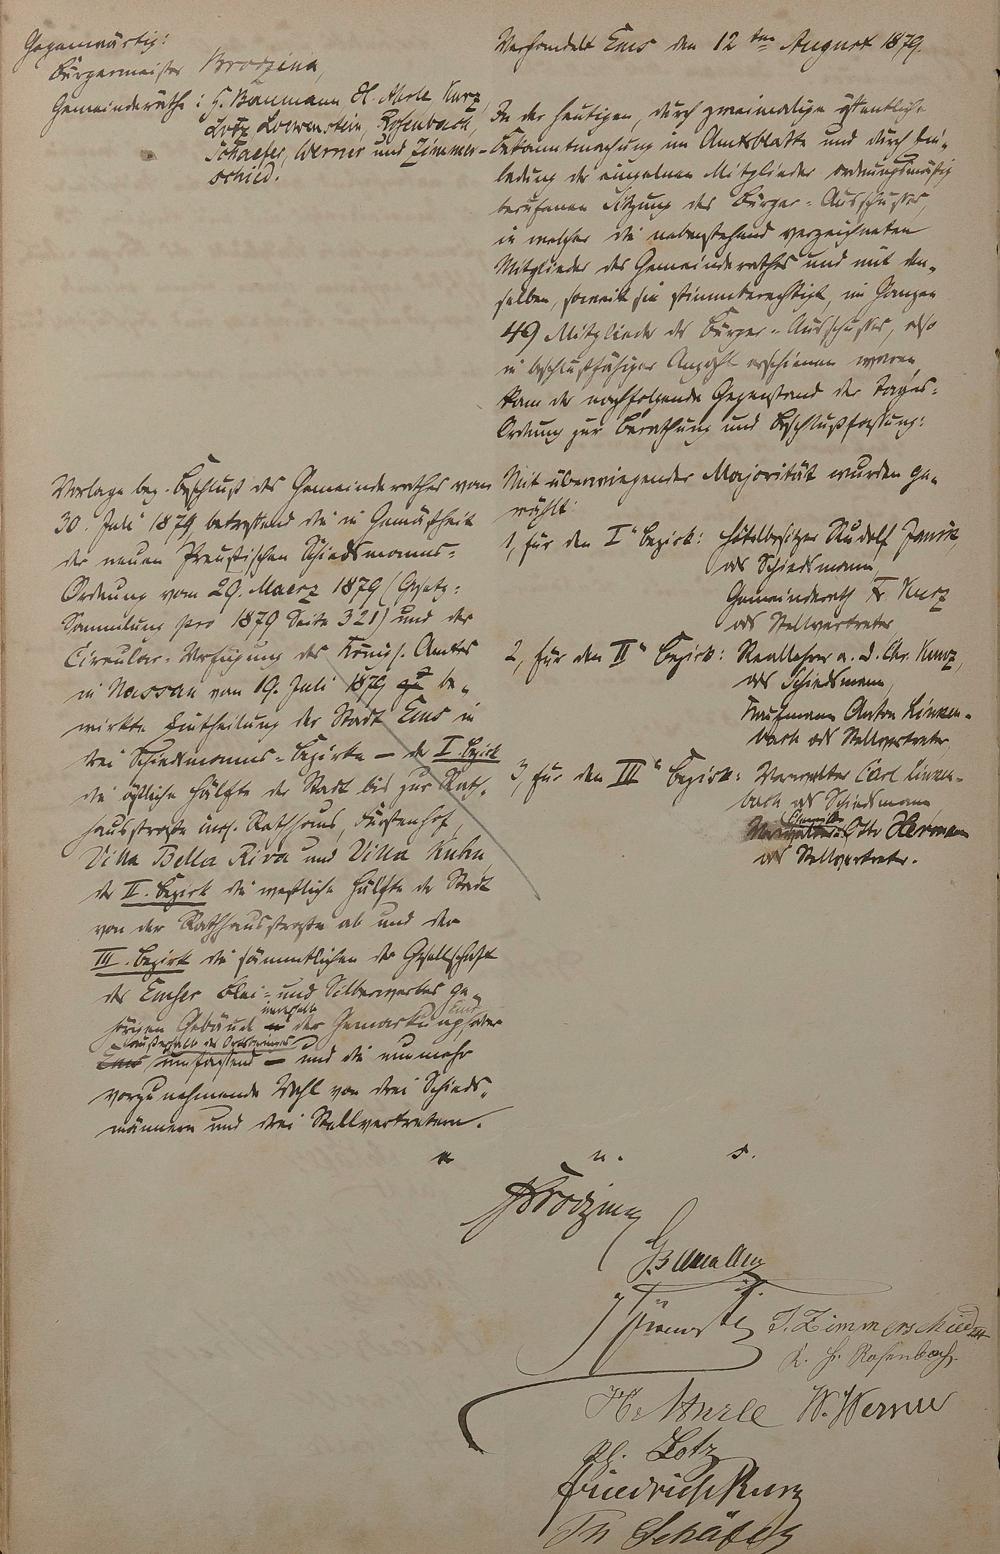 Gegenwärtig:
Bürgermeister Brodzina,
Gemeinderäthe: G. Baumann H. Ahrle Kurz,
Lotz Loewenstein, Rosenbach,
Schaefer, Werner und Zimmer-
schied.
Verhandelt Ems den 12ten August 1879.
In der heutigen, durch zweimalige öffentliche
Bekanntmachung im Amtsblatte und durch Ein-
ladung der einzelnen Mitglieder ordnungsmäßig
berufenen Sitzung des Bürger-Ausschusses,
in welcher die nebenstehend verzeichneten
Mitglieder des Gemeinderathes und mit den-
selben, soweit sie stimmberechtigt, im Ganzen
49 Mitglieder des Bürger-Ausschusses, also
in beschlußfähiger Anzahl erschienen waren
kam der nachfolgende Gegenstand der Tages-
Ordnung zur Berathung und Beschlußfassung:
Vorlage bez. Beschluß des Gemeinderathes vom
30. Juli 1879 betreffend die in Gemäßheit
der neuen Preußischen Schiedsmanns-
Ordnung vom 29. Maerz 1879 (Gesetz-
Sammlung pro 1879 Seite 321) und der
Circular-Verfügung des Königl. Amtes
in Nassau vom 19. Juli 1879 be-
wirkte Eintheilung der Stadt Ems in
drei Schiedmanns-Bezirke – der I. Bezirk
die östliche Hälfte der Stadt bis zur Rath-
hausstraße incl. Rathhaus, Fürstenhof,
Villa Bella Riva und Villa Kuhn,
der II. Bezirk die westliche Hälfte der Stadt
von der Rathhausstraße ab und der
III. Bezirk die sämmtlichen der Gesellschaft
des Emser Blei- und Silberwerkes ge-
hörigen Gebäude innerhalb der Gemarkung Ems, aber
außerhalb des Ortsberinges
Ems umfassend – und die nunmehr
vorzunehmende Wahl von drei Schieds-
männern und drei Stellvertretern.
Mit überwiegender Majorität wurden ge-
wählt:
1, für den I" Bezirk: Hôtelbesitzer Rudolf
als Schiedsmann,
Gemeinderath Fr Kurz
als Stellvertreter
2, für den II" Bezirk: Reallehrer a. D. Chr. Kunz,
als Schiedsmann,
Kaufmann Anton Linken-
bach als Stellvertreter
3, für den III" Bezirk: Verwalter Carl Linken-
bach als Schiedsmann,
Otto Hermann
als Stellvertreter.
u. s.
Brodzina
G. Baumann
J. Zimmerschied
L. H. Rosenbach
H. Ahrle W. Werner
Lotz
Friedrich Kurz
Th Schäfer